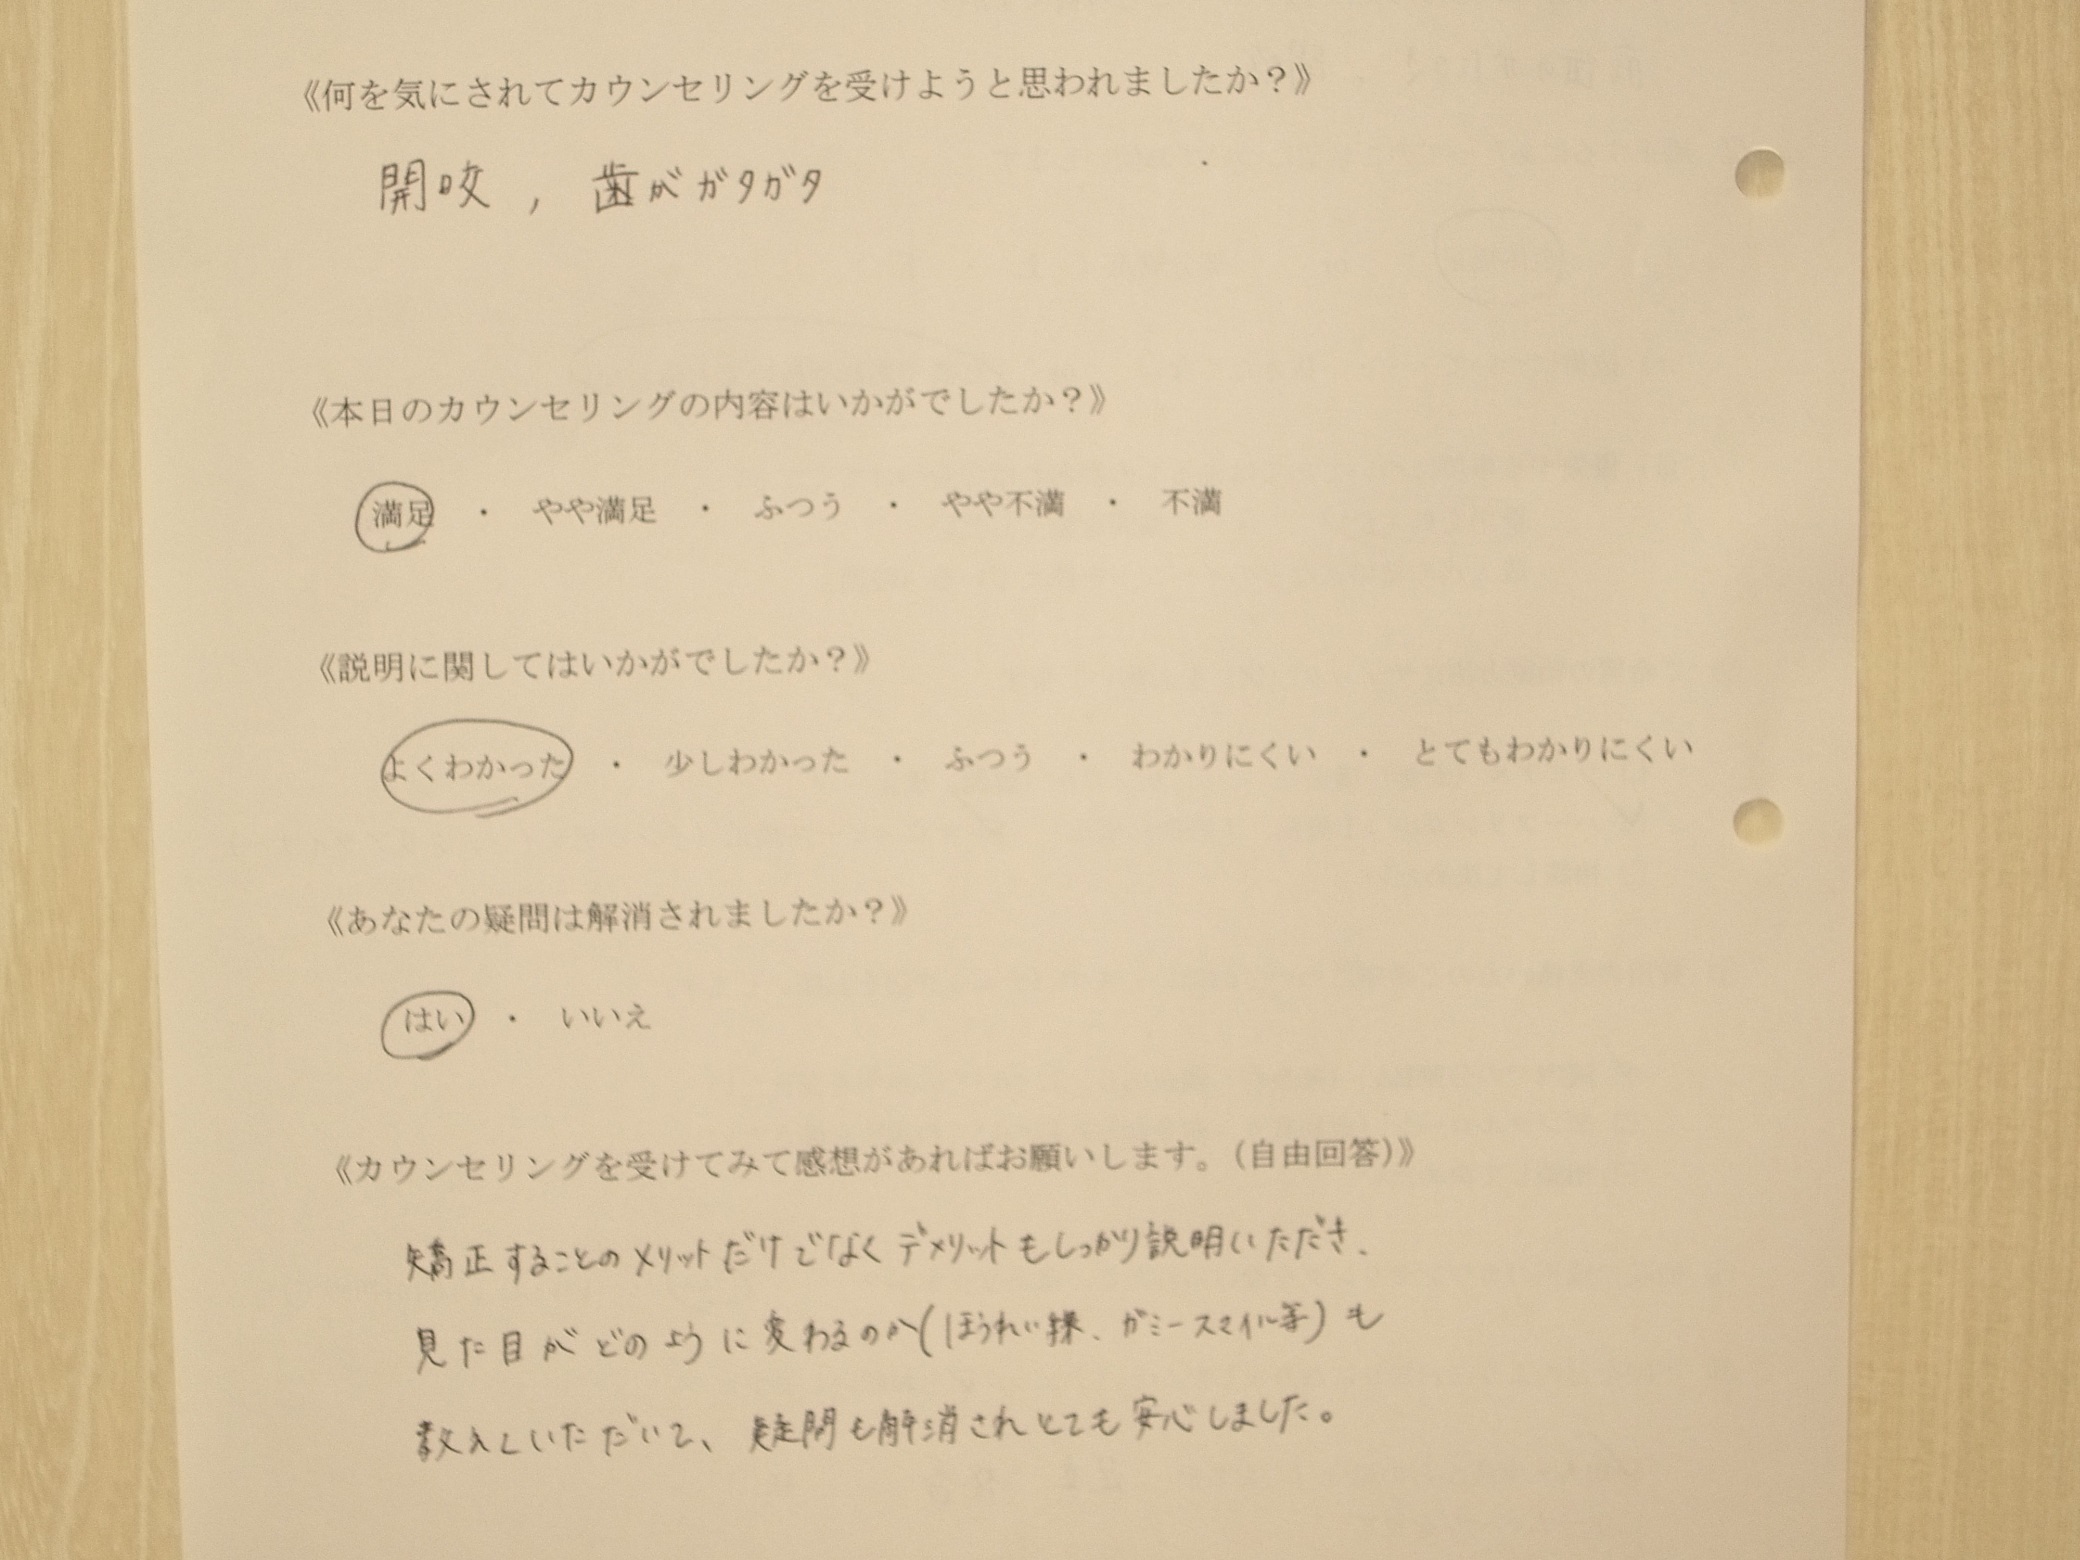 《何を気にされてカウンセリングを受けようと思われましたか？》
開咬，歯がガタガタ
《本日のカウンセリングの内容はいかがでしたか？》
満足　・　やや満足　・　ふつう　・　やや不満　・　不満
《説明に関してはいかがでしたか？》
よくわかった　・　少しわかった　・　ふつう　・　わかりにくい　・　とてもわかりにくい
《あなたの疑問は解消されましたか？》
はい　・　いいえ
《カウンセリングを受けてみて感想があればお願いします。（自由回答）》
矯正することのメリットだけでなくデメリットもしっかり説明いただき、
見た目がどのように変わるのか(ほうれい線、ガミースマイル等)も
教えていただいて、疑問も解消されとても安心しました。